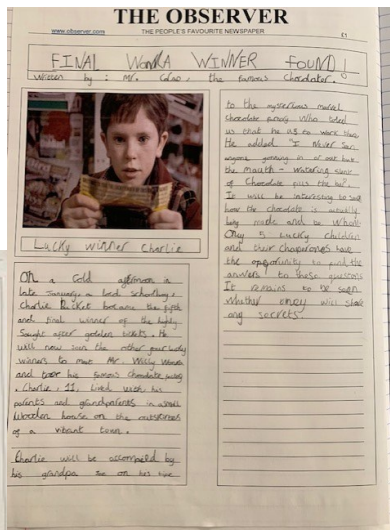 THE OBSERVER
www.observer.com THE PEOPLE'S FAVOURITE NEWSPAPER £1
FINAL WONKA WINNER FOUND!
Written by: Mr. Cocao, the famous Chocolater.
Lucky winner Charlie
On a Cold afternoon in
late January, a local schoolboy,
Charlie Bucket became the fifth
and final winner of the highly
Sought after golden tickets. He
will now join the other four lucky
winners to meet Mr. Willy Wonka
and tour his famous chocolate factory
. Charlie, 11, lived with his
parents and grandparents in a small
Wooden house on the outskirts
of a vibrant town.
Charlie will be accompied by
his grandpa Joe on his
to the mysterious marvel
chocolate Who told
us that he us to work there.
He added "I Never Saw
anyone going in or out but
the mouth - watering smell
of Chocolate fills the air".
It will be interesting to see
how the chocolate is actually
being made and by Whom.
Only 5 Lucky children
and their chaperones have
the opportunity to find the
answers to these
It remains to be seen
Whether they will share
any secrets.